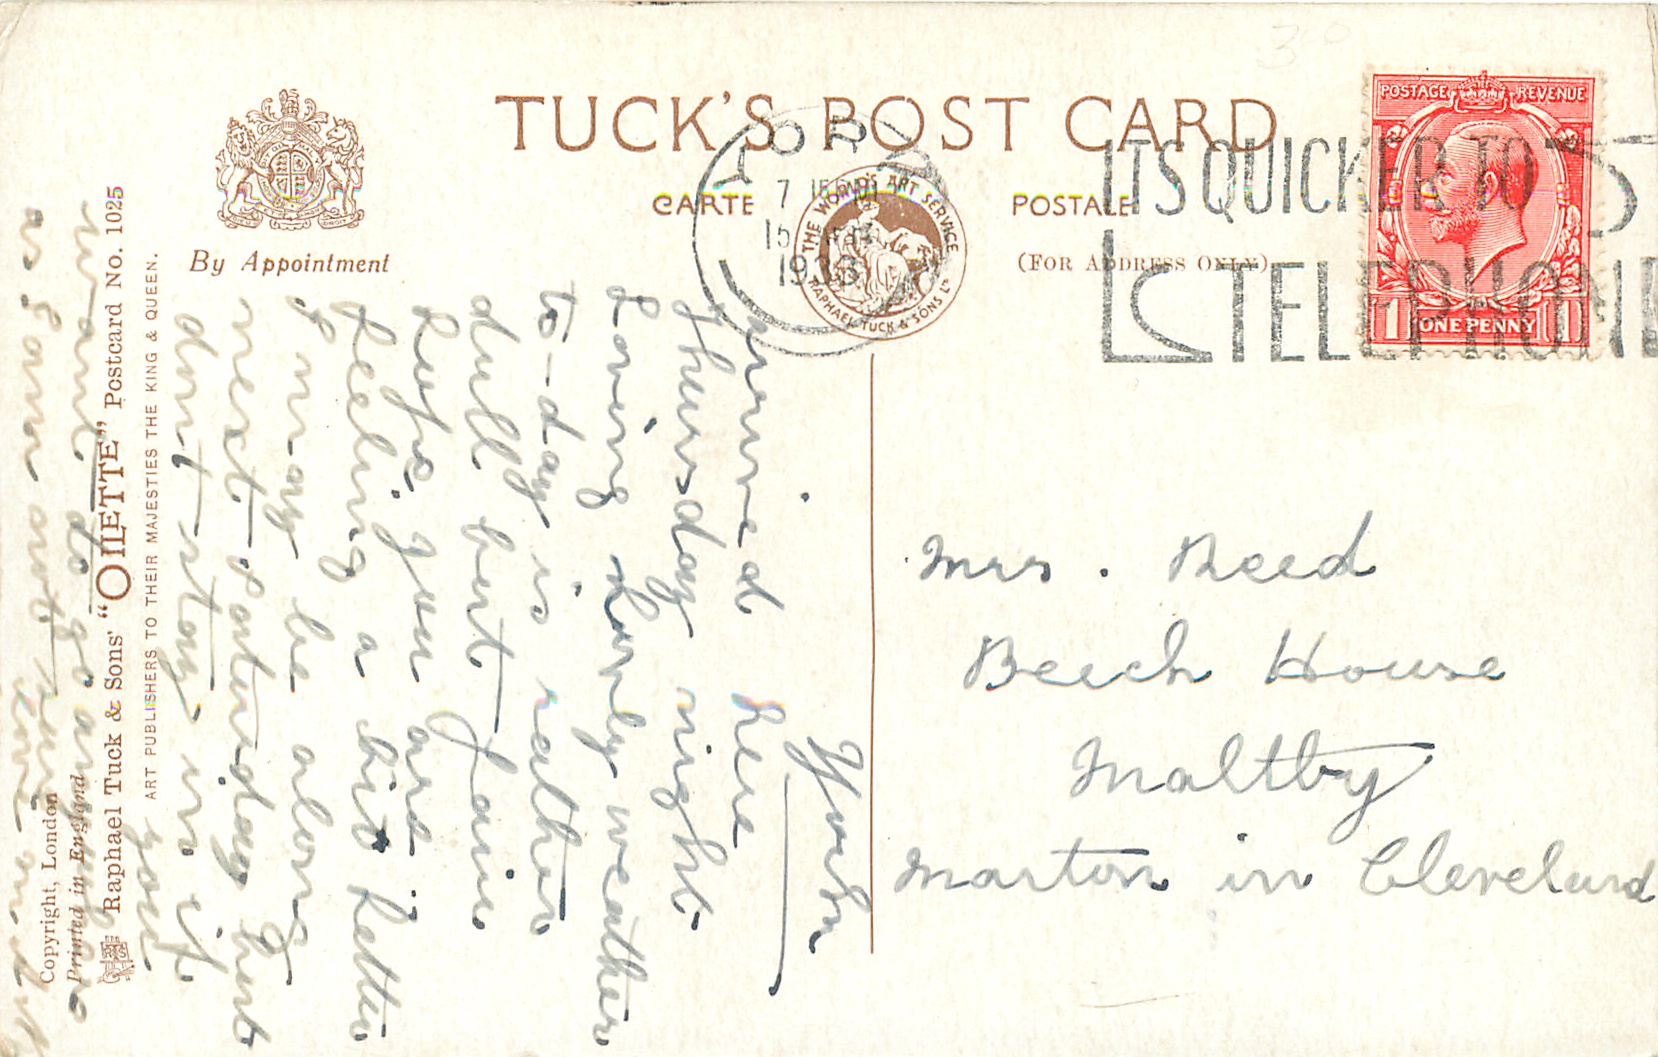 TUCK'S POST CARD
CARTE POSTALE
(FOR ADDRESS ONLY)
By Appointment
THE WORLD'S ART SERVICE
RAPHAEL TUCK & SONS LTD
7 15 PM
15
19
IT'S QUICKER TO
TELEPHONE
POSTAGE REVENUE
1 ONE PENNY 1D
York
arrived here
Thursday night.
Loving lovely weather
to-day is rather
dull but fair
hope you are
feeling a bit better
I may be along
next Saturday but
don't stay in if
you
want to go anywhere
as I am not sure
Mrs. Reed
Beech House
Maltby
Marton in Cleveland
Raphael Tuck & Sons' "OILETTE" Postcard No. 1025
ART PUBLISHERS TO THEIR MAJESTIES THE KING & QUEEN.
Copyright, London
Printed in England